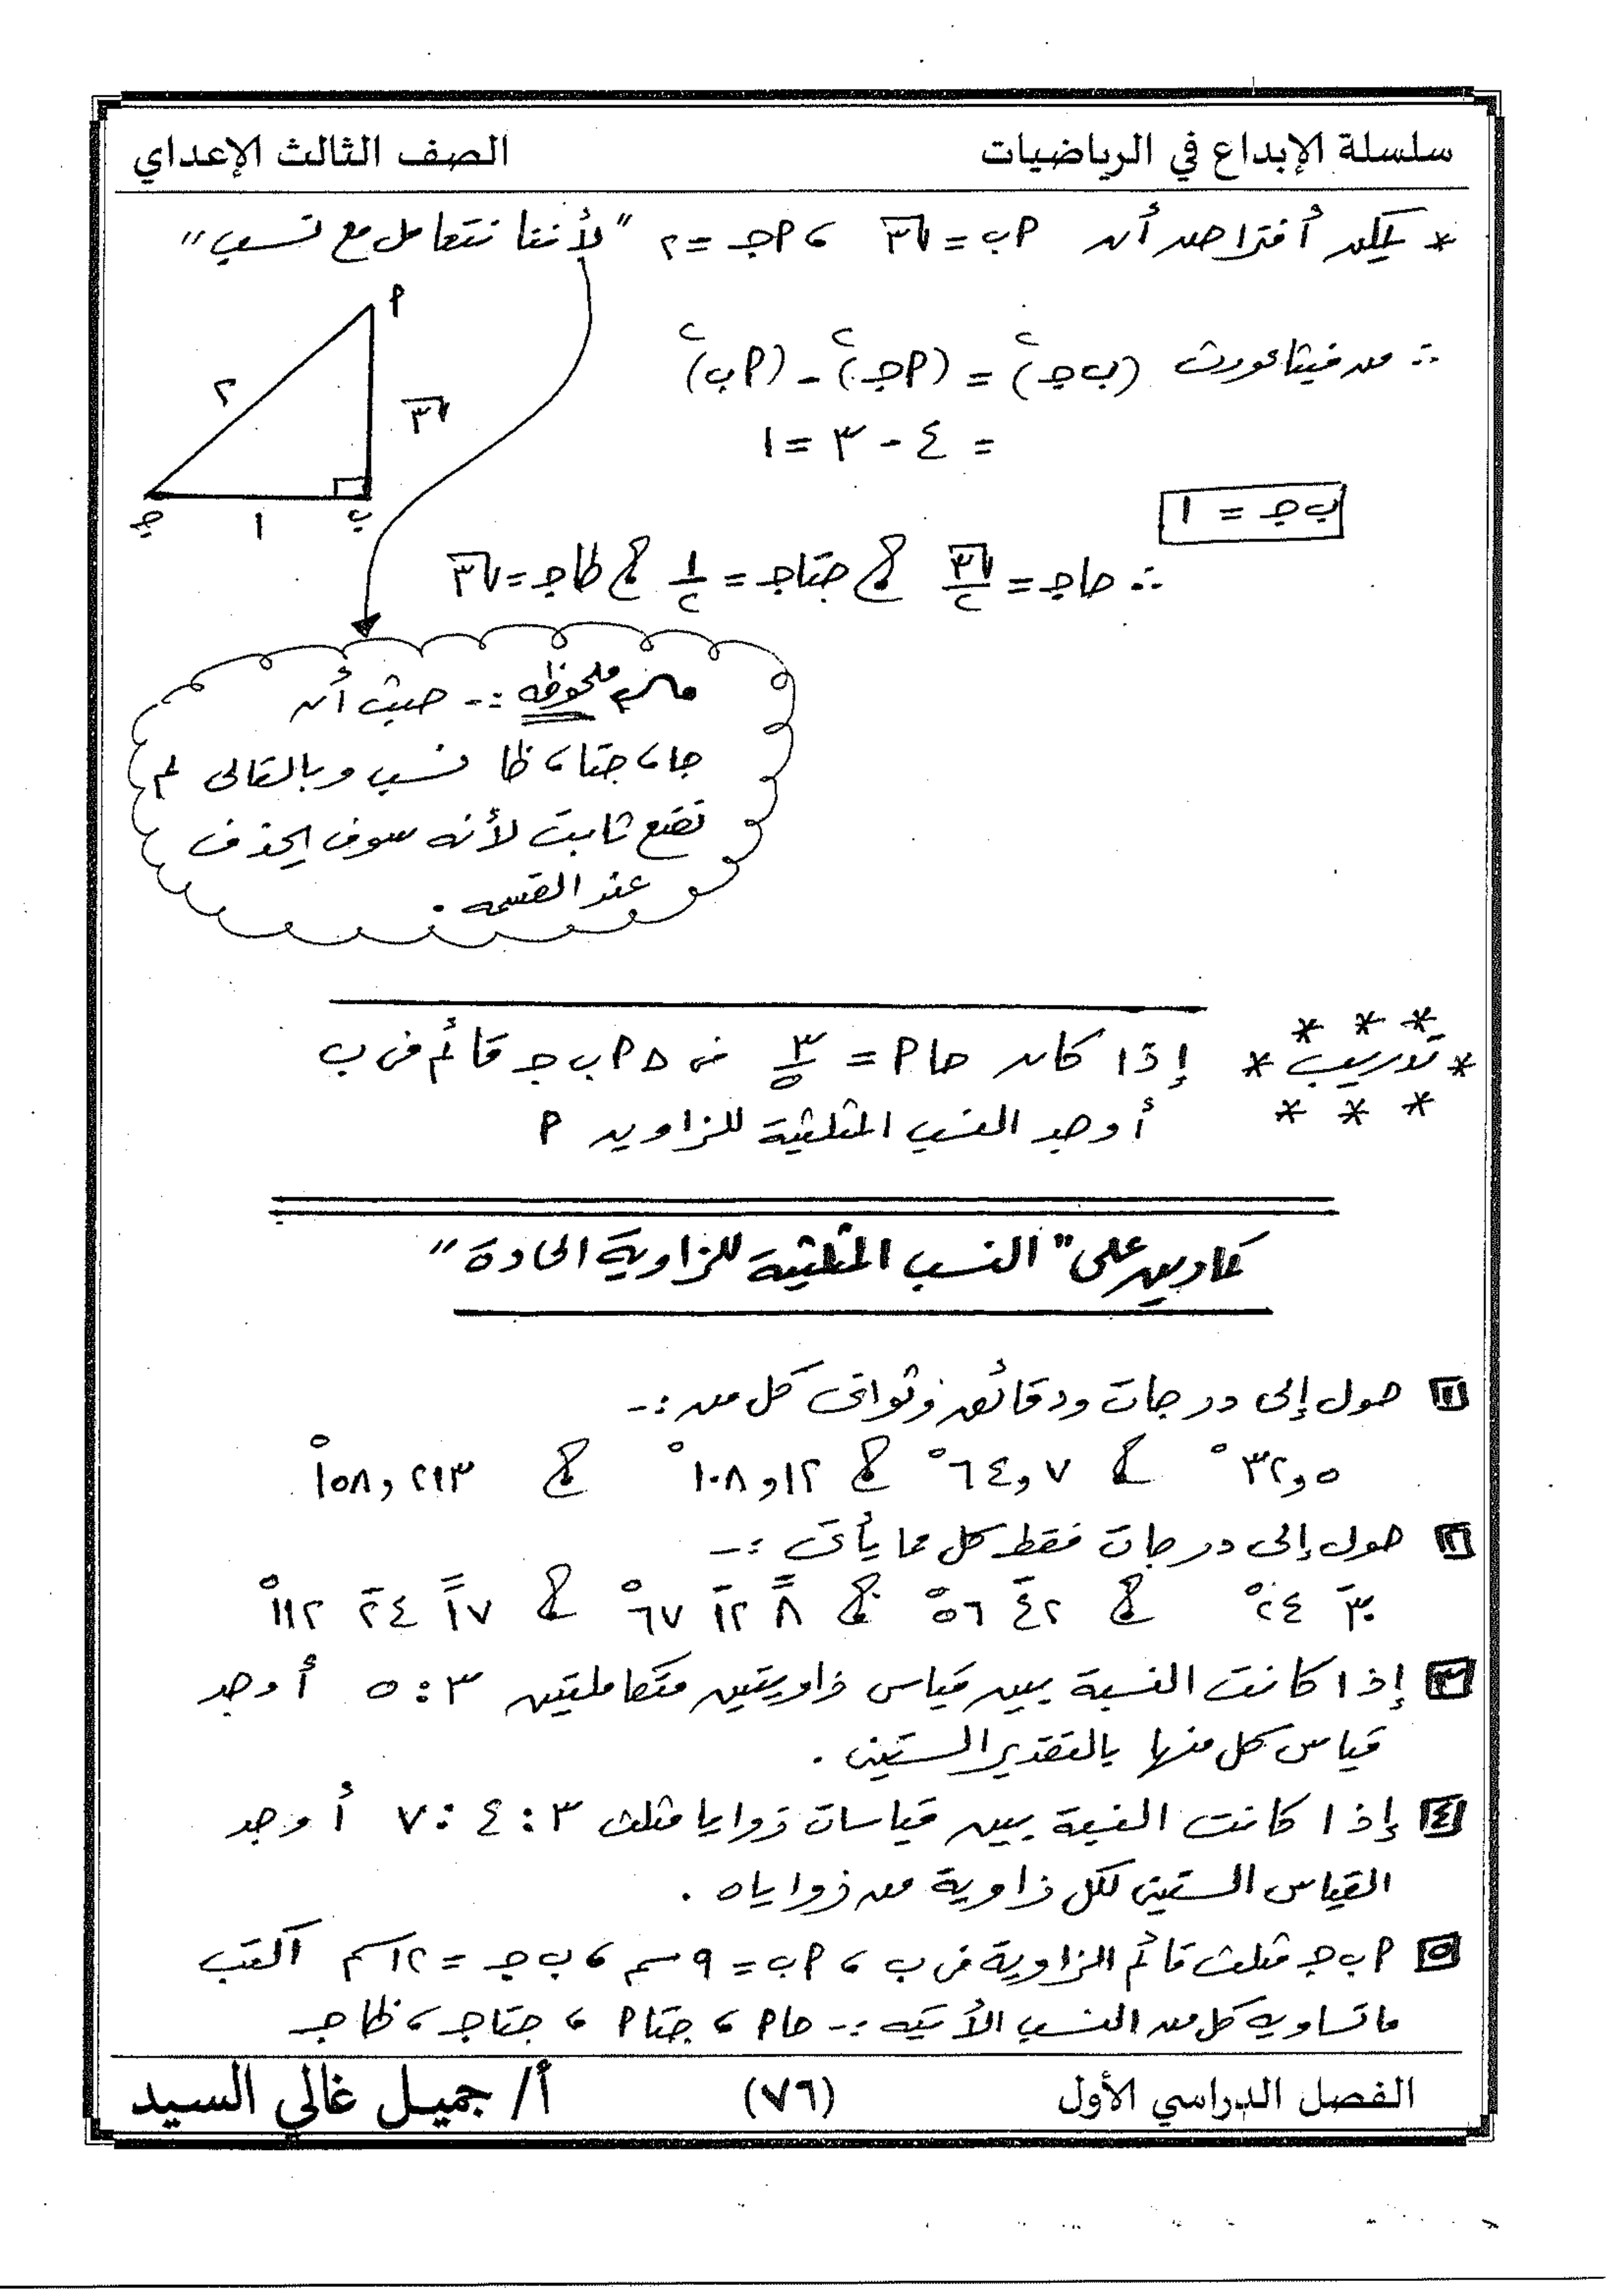 سلسلة الإبداع في الرياضيات
الصف الثالث الإعداي
* يمكن أفتراض أن أب = √٣ ، أجـ = ٢ "لأننا نتعامل مع نسب"
أ
٢
√٣
جـ
١
ب
∴ من فيثاغورث (ب جـ)٢ = (أجـ)٢ - (أب)٢
= ٤ - ٣ = ١
ب جـ = ١
∴ حاجـ = √٣/٢ ، جتاجـ = ١/٢ ، ظاجـ = √٣
ملحوظه :- حيث أن
جا ، جتا ، ظا نسب وبالتالى لم
نضع ثابت لأنه سوف يحذف
عند القسمه .
* تدريب * إذا كان حا أ = ٣/٥ فى △ أ ب جـ قائم فى ب
أوجد النسب المثلثية للزاويه أ
تمارين على "النسب المثلثية للزاوية الحادة"
١ حول إلى درجات ودقائق وثوانى كل من :-
٣٢,٥° ، ٦٤,٧° ، ١٠٨,١٢° ، ١٥٨,٢١٣°
٢ حول إلى درجات فقط كل مما يأتى :-
٣٠َ ٢٤° ، ٤٢َ ٥٦° ، ٨ً ١٢َ ٦٧° ، ١٧ً ٢٤َ ١١٢°
٣ إذا كانت النسبة بين قياس زاويتين متكاملتين ٣ : ٥ أوجد
قياس كل منها بالتقدير الستينى .
٤ إذا كانت النسبة بين قياسات زوايا مثلث ٣ : ٤ : ٧ أوجد
القياس الستينى لكل زاوية من زواياه .
٥ أ ب جـ مثلث قائم الزاوية فى ب ، أب = ٩ سم ، ب جـ = ١٢ سم اكتب
ما تساويه كل من النسب الأتيه :- حا أ ، جتا أ ، جتاجـ ، ظاجـ
الفصل الدراسي الأول
(٧٦)
أ/ جميل غالي السيد